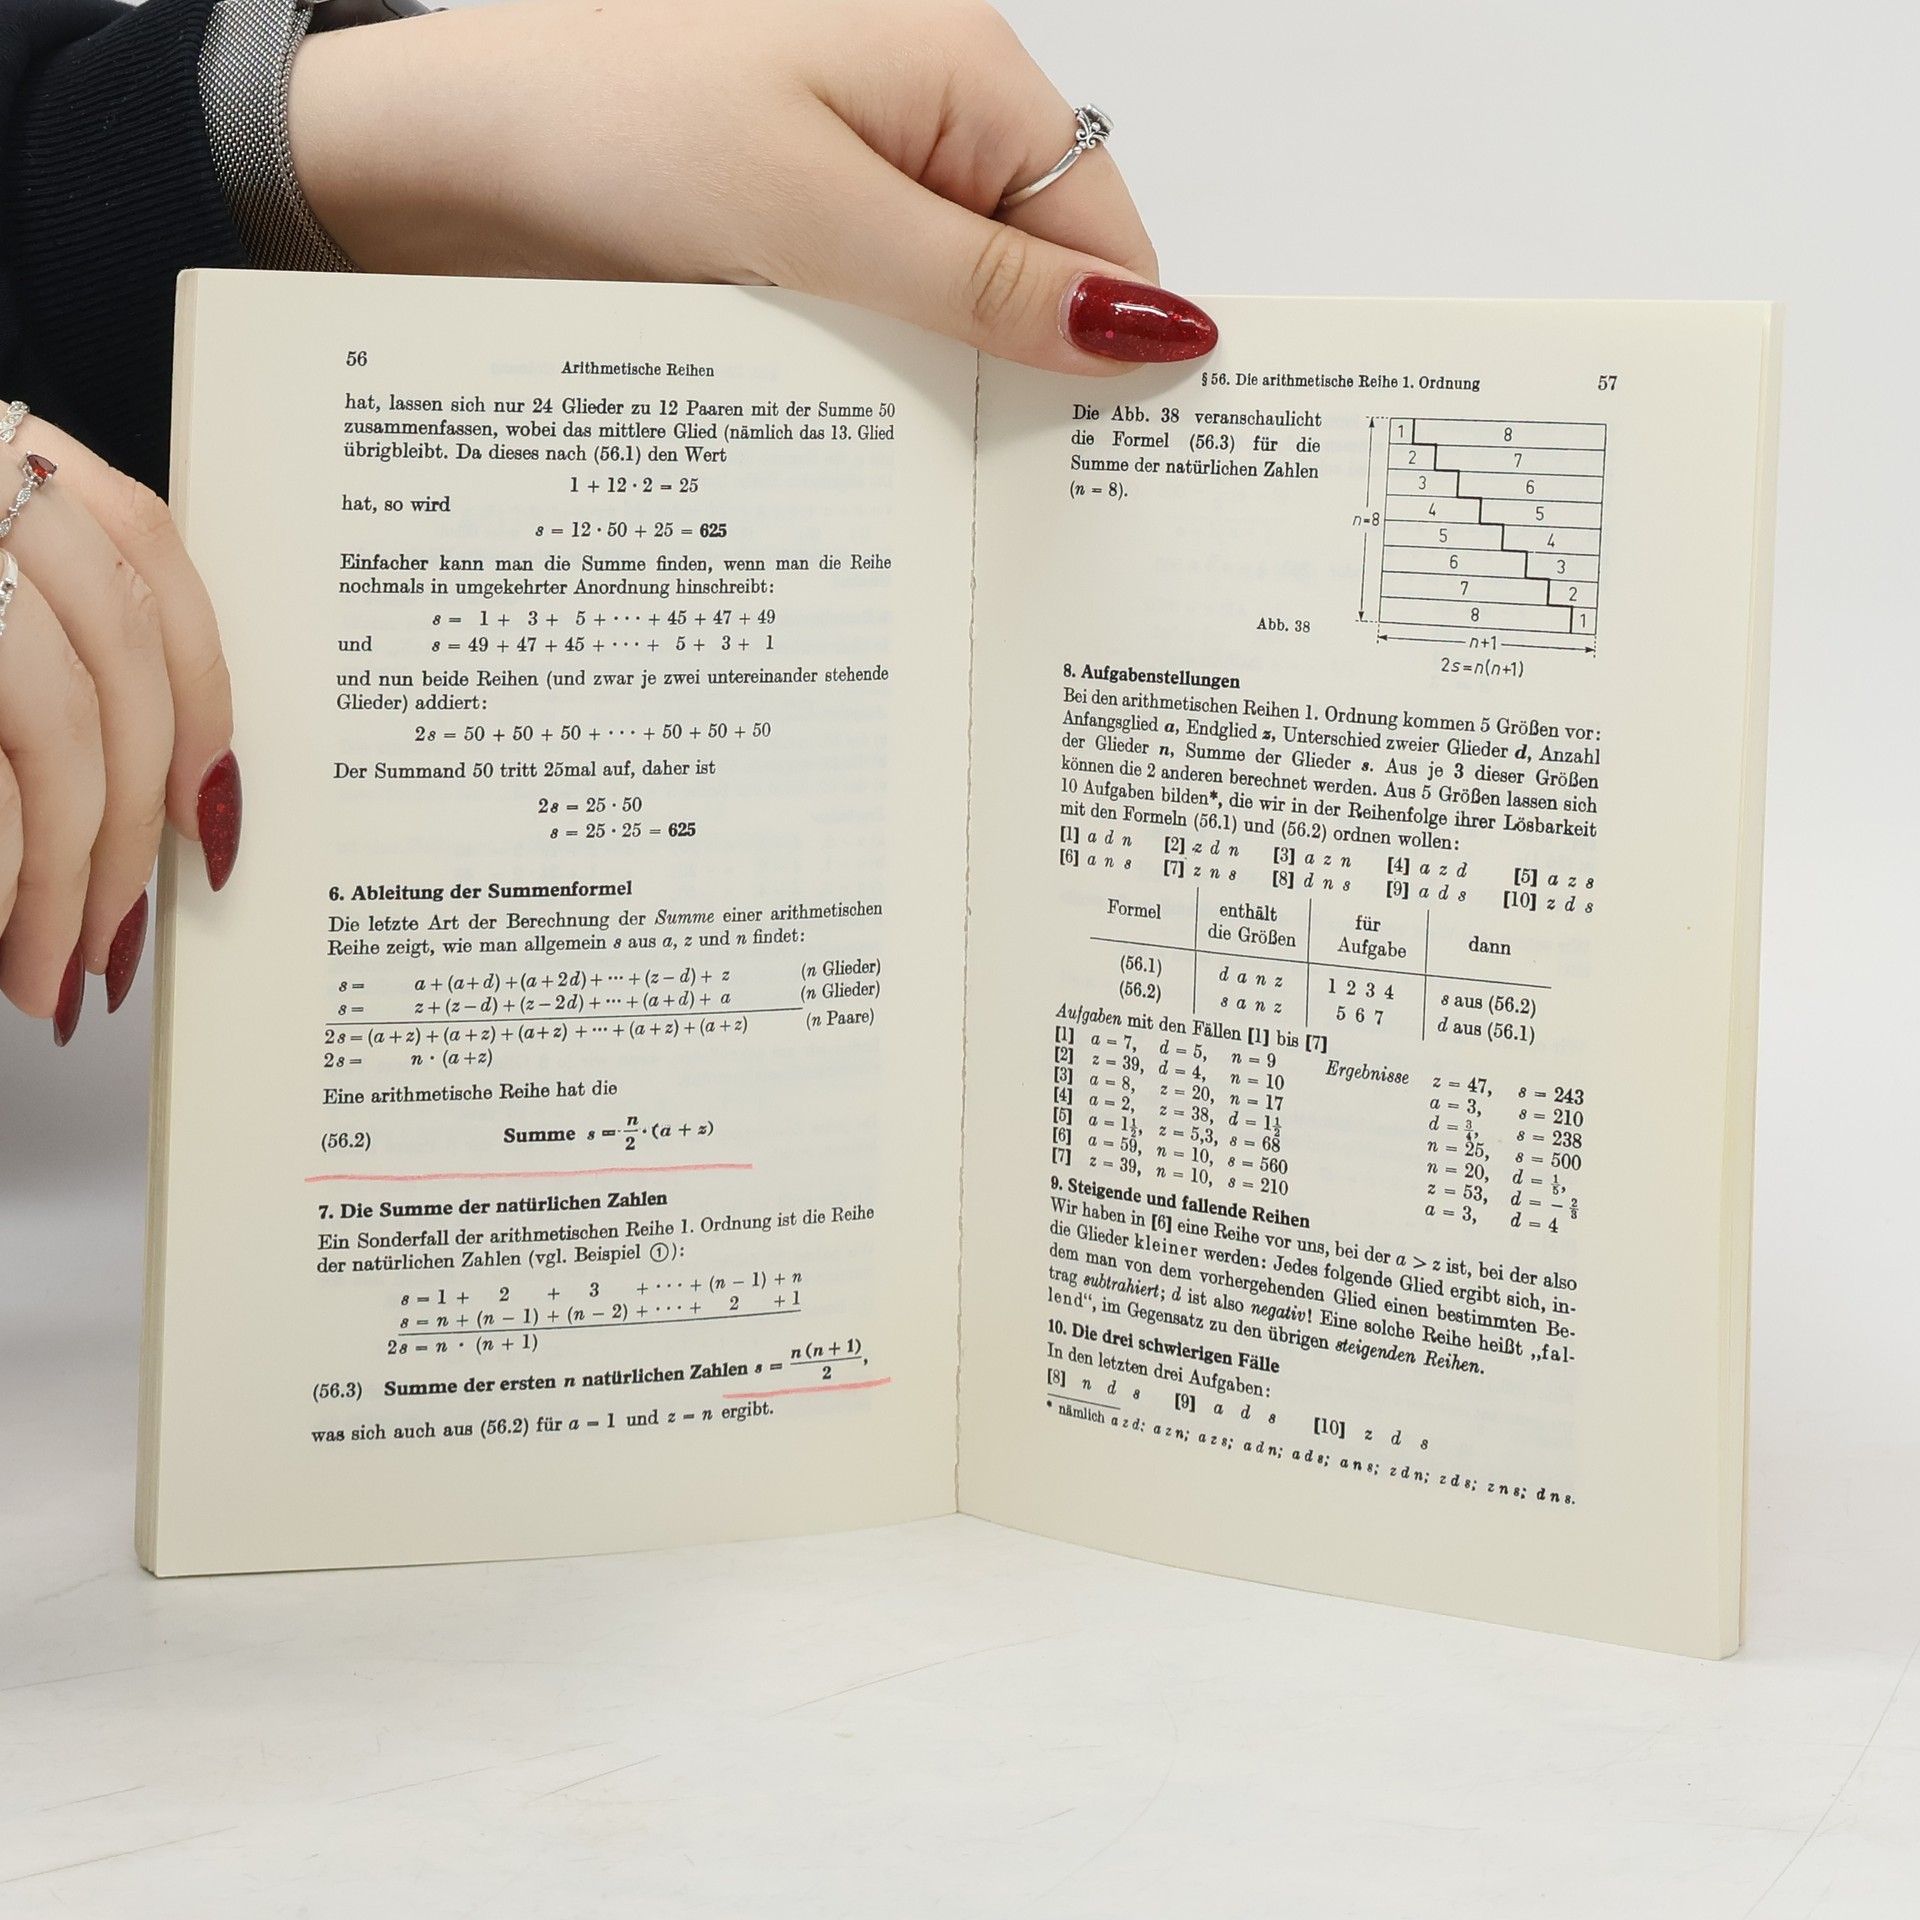 56
Arithmetische Reihen
hat, lassen sich nur 24 Glieder zu 12 Paaren mit der Summe 50
zusammenfassen, wobei das mittlere Glied (nämlich das 13. Glied
übrigbleibt. Da dieses nach (56.1) den Wert
1 + 12 · 2 = 25
hat, so wird
s = 12 · 50 + 25 = 625
Einfacher kann man die Summe finden, wenn man die Reihe
nochmals in umgekehrter Anordnung hinschreibt:
s = 1 + 3 + 5 + ··· + 45 + 47 + 49
und s = 49 + 47 + 45 + ··· + 5 + 3 + 1
und nun beide Reihen (und zwar je zwei untereinander stehende
Glieder) addiert:
2s = 50 + 50 + 50 + ··· + 50 + 50 + 50
Der Summand 50 tritt 25mal auf, daher ist
2s = 25 · 50
s = 25 · 25 = 625
6. Ableitung der Summenformel
Die letzte Art der Berechnung der Summe einer arithmetischen
Reihe zeigt, wie man allgemein s aus a, z und n findet:
s = a + (a + d) + (a + 2d) + ··· + (z − d) + z (n Glieder)
s = z + (z − d) + (z − 2d) + ··· + (a + d) + a (n Glieder)
2s = (a + z) + (a + z) + (a + z) + ··· + (a + z) + (a + z) (n Paare)
2s = n · (a + z)
Eine arithmetische Reihe hat die
(56.2) Summe s = n/2 · (a + z)
7. Die Summe der natürlichen Zahlen
Ein Sonderfall der arithmetischen Reihe 1. Ordnung ist die Reihe
der natürlichen Zahlen (vgl. Beispiel ①):
s = 1 + 2 + 3 + ··· + (n − 1) + n
s = n + (n − 1) + (n − 2) + ··· + 2 + 1
2s = n · (n + 1)
(56.3) Summe der ersten n natürlichen Zahlen s = n(n + 1)/2,
was sich auch aus (56.2) für a = 1 und z = n ergibt.
§ 56. Die arithmetische Reihe 1. Ordnung
57
Die Abb. 38 veranschaulicht
die Formel (56.3) für die
Summe der natürlichen Zahlen
(n = 8).
1 8
2 7
3 6
4 5
5 4
6 3
7 2
8 1
n=8
n+1
2s=n(n+1)
Abb. 38
8. Aufgabenstellungen
Bei den arithmetischen Reihen 1. Ordnung kommen 5 Größen vor:
Anfangsglied a, Endglied z, Unterschied zweier Glieder d, Anzahl
der Glieder n, Summe der Glieder s. Aus je 3 dieser Größen
können die 2 anderen berechnet werden. Aus 5 Größen lassen sich
10 Aufgaben bilden*, die wir in der Reihenfolge ihrer Lösbarkeit
mit den Formeln (56.1) und (56.2) ordnen wollen:
[1] a d n [2] z d n [3] a z n [4] a z d [5] a z s
[6] a n s [7] z n s [8] d n s [9] a d s [10] z d s
Formel enthält die Größen für Aufgabe dann
(56.1) d a n z 1 2 3 4 s aus (56.2)
(56.2) s a n z 5 6 7 d aus (56.1)
Aufgaben mit den Fällen [1] bis [7] Ergebnisse
[1] a = 7, d = 5, n = 9 z = 47, s = 243
[2] z = 39, d = 4, n = 10 a = 3, s = 210
[3] a = 8, z = 20, n = 17 d = 3/4, s = 238
[4] a = 2, z = 38, d = 1 1/2 n = 25, s = 500
[5] a = 1 1/2, z = 5,3, s = 68 n = 20, d = 1/5,
[6] a = 59, n = 10, s = 560 z = 53, d = − 2/3
[7] z = 39, n = 10, s = 210 a = 3, d = 4
9. Steigende und fallende Reihen
Wir haben in [6] eine Reihe vor uns, bei der a > z ist, bei der also
die Glieder kleiner werden: Jedes folgende Glied ergibt sich, in-
dem man von dem vorhergehenden Glied einen bestimmten Be-
trag subtrahiert; d ist also negativ! Eine solche Reihe heißt „fal-
lend“, im Gegensatz zu den übrigen steigenden Reihen.
10. Die drei schwierigen Fälle
In den letzten drei Aufgaben:
[8] n d s [9] a d s [10] z d s
* nämlich a z d; a z n; a z s; a d n; a d s; a n s; z d n; z d s; z n s; d n s.